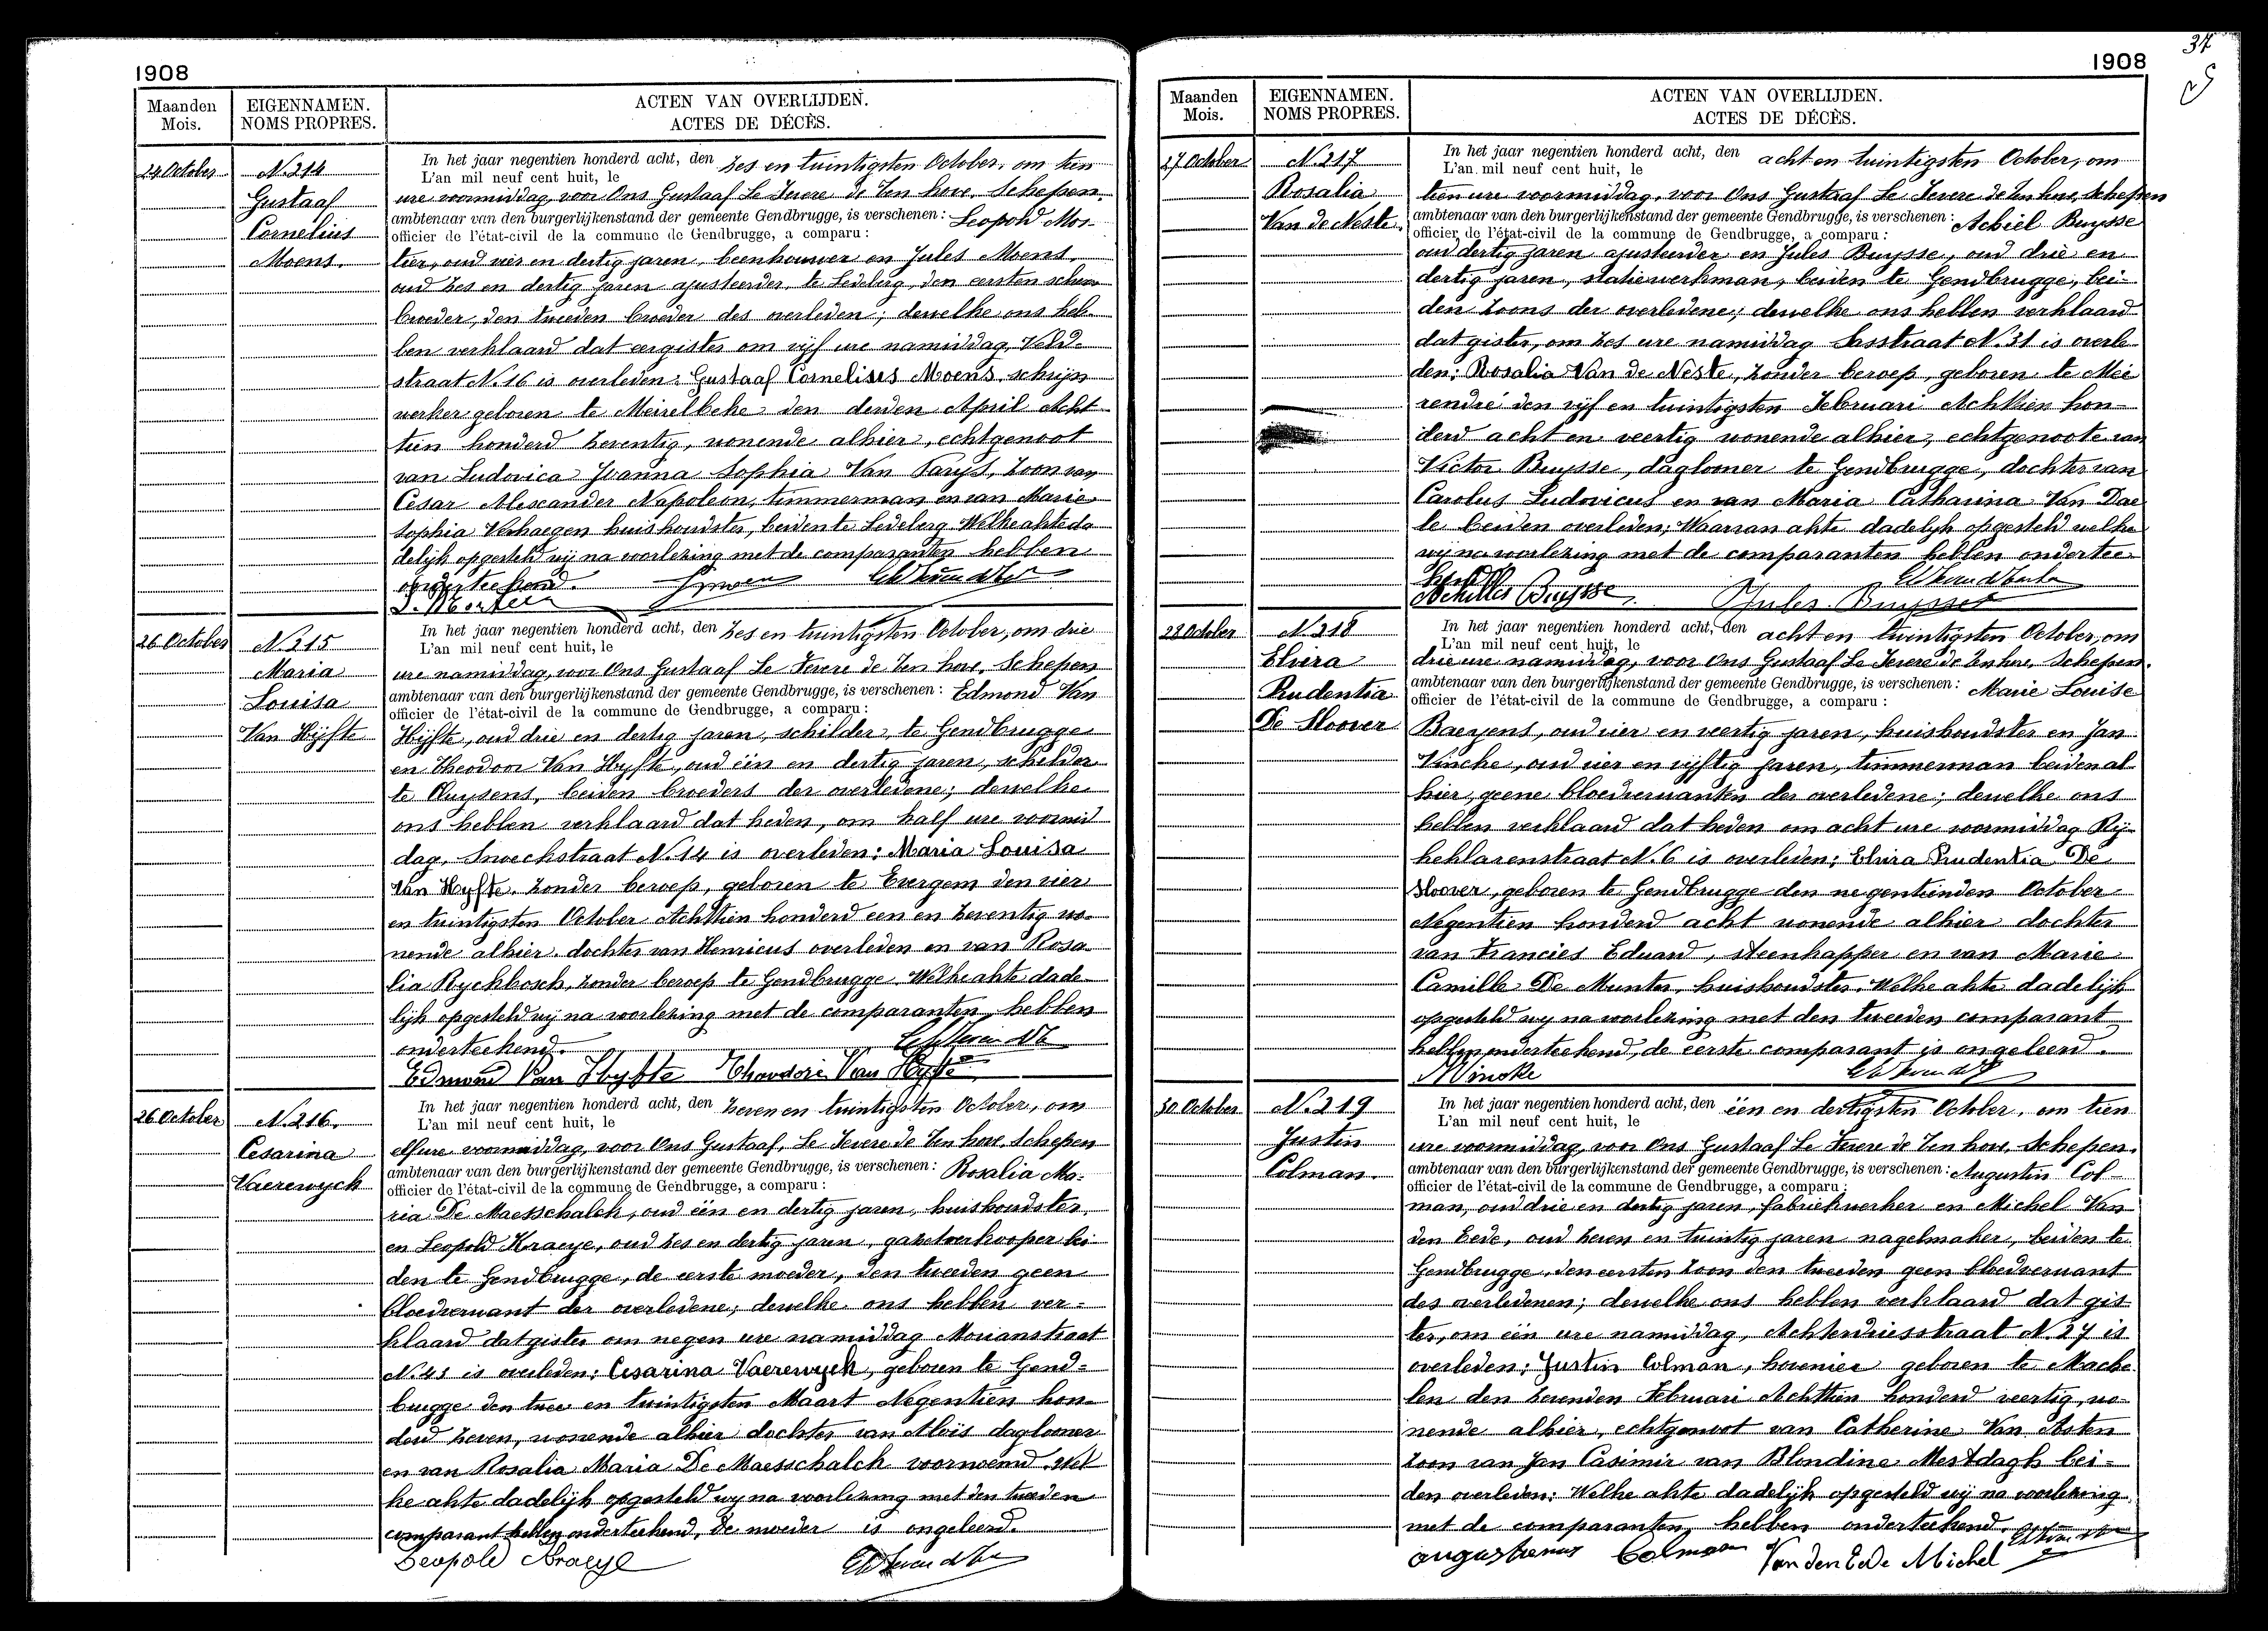 1908
Maanden
Mois.
EIGENNAMEN.
NOMS PROPRES.
ACTEN VAN OVERLIJDEN.
ACTES DE DÉCÈS.
24 October
N. 214
Gustaaf
Cornelius
Moens.
In het jaar negentien honderd acht, den zes en twintigsten October, om tien
L'an mil neuf cent huit, le
ure voormiddag, voor Ons Gustaaf Le Fevere de Ten hove, Schepen,
ambtenaar van den burgerlijkenstand der gemeente Gendbrugge, is verschenen: Leopold Mor-
officier de l'état-civil de la commune de Gendbrugge, a comparu:
tier, oud vier en dertig jaren, beenhouwer en Jules Moens,
oud zes en dertig jaren ajusteerder, te Ledeberg, den eersten schoon
broeder, den tweeden broeder des overleden; dewelke ons heb-
ben verklaard dat eergister om vijf ure namiddag, Veld-
straat N. 16 is overleden: Gustaaf Cornelius Moens, schrijn
werker geboren te Meirelbeke den derden April Acht
tien honderd zeventig, wonende alhier, echtgenoot
van Ludovica Joanna Sophia Van Parys, zoon van
Cesar Alexander Napoleon, timmerman en van Marie
Sophia Verhaegen huishoudster, beiden te Ledeberg. Welke akte da
delijk opgesteld wij na voorlezing met de comparanten hebben
onderteekend.
26 October
N. 215
Maria
Louisa
Van Hijfte
In het jaar negentien honderd acht, den zes en twintigsten October, om drie
L'an mil neuf cent huit, le
ure namiddag, voor Ons Gustaaf Le Fevere de Ten hove, Schepen
ambtenaar van den burgerlijkenstand der gemeente Gendbrugge, is verschenen: Edmond Van
officier de l'état-civil de la commune de Gendbrugge, a comparu:
Hijfte, oud drie en dertig jaren, schilder, te Gendbrugge
en Theodoor Van Hyfte, oud één en dertig jaren, schilder
te Cluysens, beiden broeders der overledene; dewelke
ons hebben verklaard dat heden, om half ure voormid
dag, Snoeckstraat N. 14 is overleden: Maria Louisa
Van Hyfte, zonder beroep, geboren te Evergem den vier
en twintigsten October Achttien honderd een en zeventig wo-
nende alhier, dochter van Henricus overleden en van Rosa
lia Ryckbosch, zonder beroep te Gendbrugge. Welke akte dade
lijk opgesteld wij na voorlezing met de comparanten hebben
onderteekend.
Edmond Van Hyfte Theodore Van Hyfte
26 October
N. 216.
Cesarina
Vaerewyck
In het jaar negentien honderd acht, den zeven en twintigsten October, om
L'an mil neuf cent huit, le
elf ure voormiddag, voor Ons Gustaaf, Le Fevere de Ten hove Schepen
ambtenaar van den burgerlijkenstand der gemeente Gendbrugge, is verschenen: Rosalia Ma-
officier de l'état-civil de la commune de Gendbrugge, a comparu:
ria De Maesschalck, oud één en dertig jaren, huishoudster,
en Leopold Kraeye, oud zes en dertig jaren, gazetverkooper bei
den te Gendbrugge, de eerste moeder, den tweeden geen
bloedverwant der overledene; dewelke ons hebben ver-
klaard dat gister om negen ure namiddag Moriaanstraat
N. 43 is overleden: Cesarina Vaerewyck, geboren te Gend-
brugge den twee en twintigsten Maart Negentien hon-
derd zeven, wonende alhier dochter van Aloïs daglooner
en van Rosalia Maria De Maesschalck voornoemd. Wel
ke akte dadelijk opgesteld wij na voorlezing met den tweeden
comparant hebben onderteekend, de moeder is ongeleerd.
Leopold Kraeye
37
1908
Maanden
Mois.
EIGENNAMEN.
NOMS PROPRES.
ACTEN VAN OVERLIJDEN.
ACTES DE DÉCÈS.
27 October
N. 217
Rosalia
Van de Neste
In het jaar negentien honderd acht, den acht en twintigsten October, om
L'an mil neuf cent huit, le
tien ure voormiddag, voor Ons Gustaaf Le Fevere de Ten hove, Schepen
ambtenaar van den burgerlijkenstand der gemeente Gendbrugge, is verschenen: Achiel Buysse
officier de l'état-civil de la commune de Gendbrugge, a comparu:
oud dertig jaren ajusteerder en Jules Buysse, oud drie en
dertig jaren, statiewerkman, beiden te Gendbrugge, bei-
den zoons der overledene; dewelke ons hebben verklaard
dat gister, om zes ure namiddag Sasstraat N. 31 is overle
den: Rosalia Van de Neste, zonder beroep, geboren te Mee
rendré den vijf en twintigsten Februari Achttien hon-
derd acht en veertig wonende alhier, echtgenoote van
Victor Buysse, daglooner te Gendbrugge, dochter van
Carolus Ludovicus en van Maria Catharina Van Dae
le beiden overleden; Waarvan akte dadelyk opgesteld welke
wij na voorlezing met de comparanten hebben ondertee-
kend
Achilles Buysse Jules Buysse
28 October
N. 218
Elvira
Prudentia
De Sloover
In het jaar negentien honderd acht, den acht en twintigsten October, om
L'an mil neuf cent huit, le
drie ure namiddag, voor Ons Gustaaf Le Fevere de Ten hove, Schepen.
ambtenaar van den burgerlijkenstand der gemeente Gendbrugge, is verschenen: Marie Louise
officier de l'état-civil de la commune de Gendbrugge, a comparu:
Baeyens, oud vier en veertig jaren, huishoudster en Jan
Vincke, oud vier en vijftig jaren, timmerman beiden al
hier, geene bloedverwanten der overledene; dewelke ons
hebben verklaard dat heden om acht ure voormiddag Rij-
keklarenstraat N. 6 is overleden: Elvira Prudentia De
Sloover, geboren te Gendbrugge den negentienden October
Negentien honderd acht wonende alhier dochter
van Francies Eduard, steenkapper en van Marie
Camille De Munter, huishoudster. Welke akte dadelijk
opgesteld wij na voorlezing met den tweeden comparant
hebben onderteekend, de eerste comparant is ongeleerd.
J Vincke
30 October
N. 219
Justin
Colman.
In het jaar negentien honderd acht, den één en dertigsten October, om tien
L'an mil neuf cent huit, le
ure voormiddag, voor Ons Gustaaf Le Fevere de Ten hove, Schepen.
ambtenaar van den burgerlijkenstand der gemeente Gendbrugge, is verschenen: Augustin Col-
officier de l'état-civil de la commune de Gendbrugge, a comparu:
man, oud drie en dertig jaren, fabriekwerker en Michel Van
den Eede, oud zeven en twintig jaren nagelmaker, beiden te
Gendbrugge, den eersten zoon den tweeden geen bloedverwant
des overledenen; dewelke ons hebben verklaard dat gis-
ter, om één ure namiddag, Achterdriesstraat N. 27 is
overleden: Justin Colman, hovenier geboren te Mache
len den zevenden Februari Achttien honderd veertig, wo-
nende alhier, echtgenoot van Catherine Van Asten
zoon van Jan Casimir van Blondine Mestdagh bei-
den overleden: Welke akte dadelijk opgesteld wij na voorlezing
met de comparanten hebben onderteekend.
augustinus Colman Van den Eede Michel